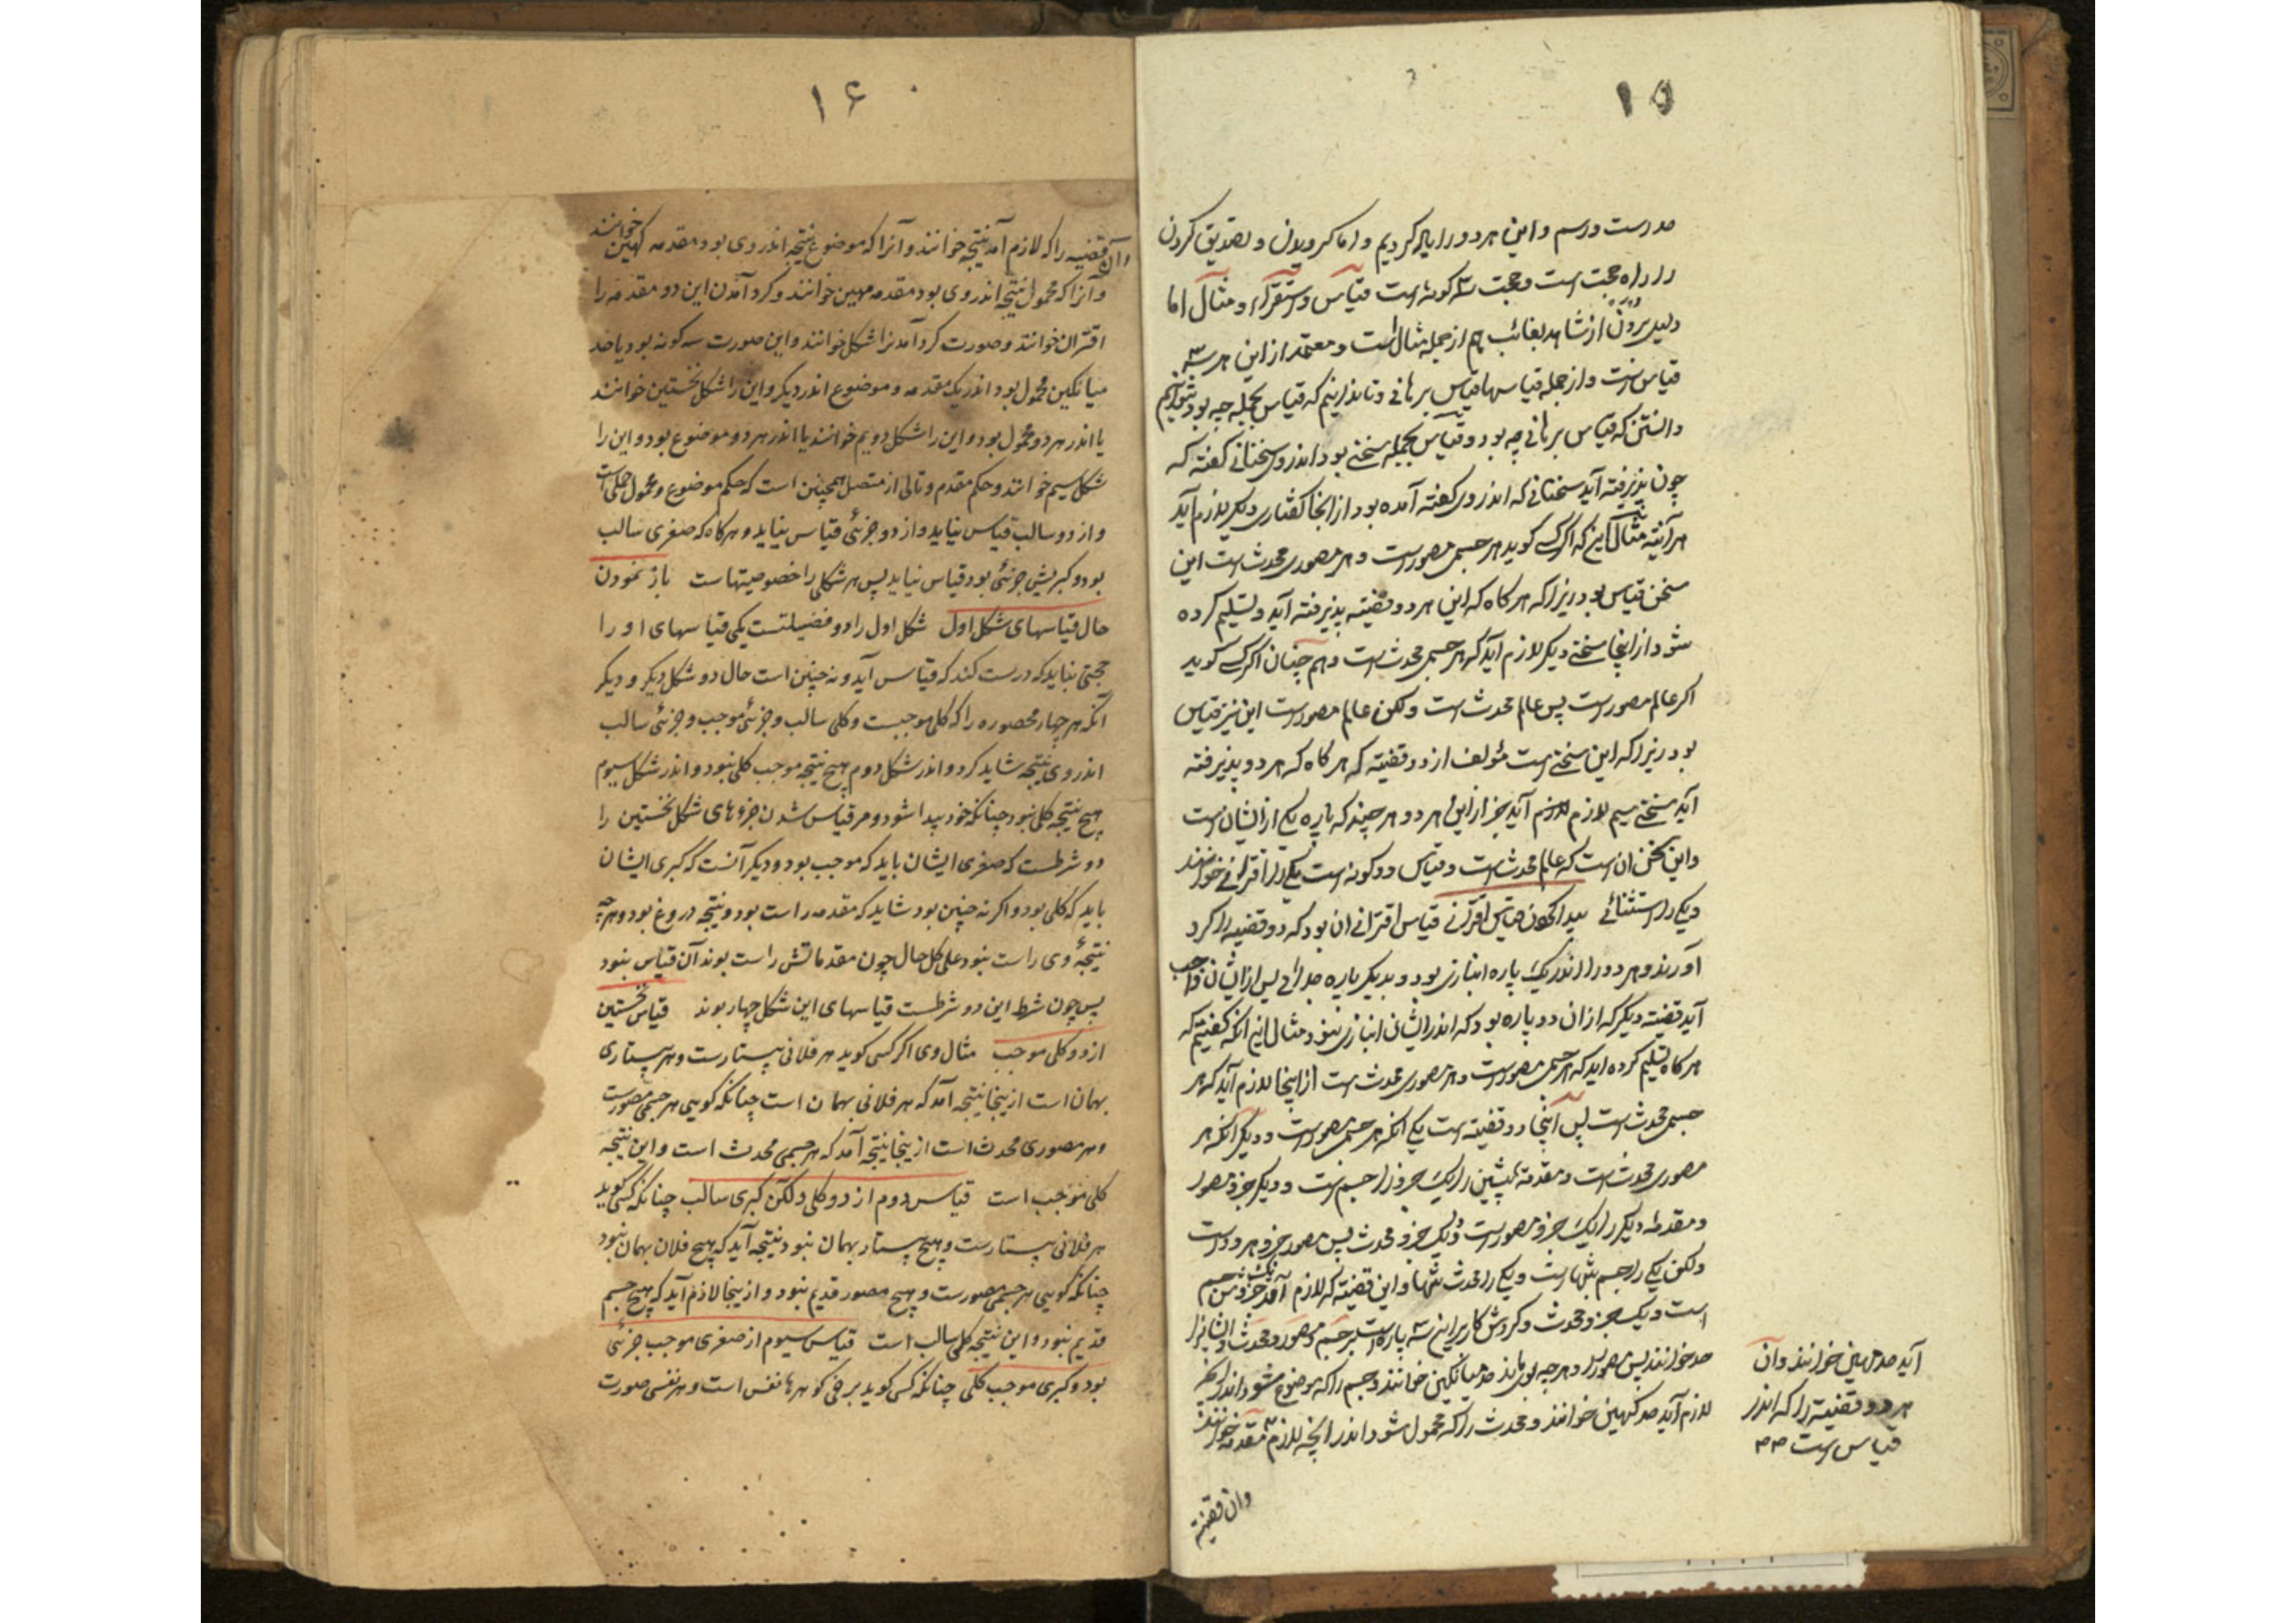 ۱۵
حد رست و رسم و این هر دو را یاد کردیم و اما گرویدن و تصدیق کردن
را راه حجت است و حجت سه گونه است قیاس و استقراء و مثال اما
دلیل بردن از شاهد بغائب هم از جمله مثال است و معتمد از این هر سه
قیاس است و از جمله قیاسها قیاس برهانی و تا ندانیم که قیاس بجمله چه بود نتوانیم
دانستن که قیاس برهانی چه بود و قیاس بجمله سخنی بود اندر وی سخنانی گفته که
چون پذیرفته آید سخنانی که اندر وی گفته آمده بود از آنجا گفتاری دیگر لازم آید
هر آینه مثال این که اگر کسی گوید هر جسمی مصورست و هر مصوری محدث است این
سخن قیاس بود زیرا که هر گاه که این هر دو قضیته پذیرفته آید و تسلیم کرده
شود از اینجا سخنی دیگر لازم آید که هر جسمی محدث است و هم چنان اگر کسی گوید
اگر عالم مصورست پس عالم محدث است ولکن عالم مصورست این نیز قیاس
بود زیرا که این سخنی است مؤلف از دو قضیته که هر گاه که هر دو پذیرفته
آید سخنی سیم لازم آید جز از این هر دو هر چند که پاره یکی از ایشان است
و این سخن آن است که عالم محدث است و قیاس دو گونه است یکی را اقترانی خوانند
و یکی را استثنائی پیدا کردن قیاس اقترانی قیاس اقترانی آن بود که دو قضیه را گرد
آورند و هر دو را اندر یک پاره انبازی بود و بدیگر پاره جدائی پس از ایشان واجب
آید قضیته دیگر که از آن دو پاره بود که اندر ایشان انبازی نبود مثال این آنکه گفتیم که
هر گاه تسلیم کرده آید که هر جسمی مصورست و هر مصوری محدث است از اینجا لازم آید که هر
جسمی محدث است پس اینجا دو قضیته است یکی آنکه هر جسمی مصورست و دیگر آنکه هر
مصوری محدث است و مقدمه پیشین را یک جزو جسم است و دیگر جزو مصور
و مقدمه دیگر را یک جزو مصورست و یک جزو محدث پس مصور جزو هر دو است
ولکن یکی را جسم تنها است و یکی را محدث تنها و این قضیته که لازم آمد یک جزوش جسم
است و یک جزو محدث و گردش کار بر این سه پاره است بر جسم و مصور و محدث و ایشان را
حد خوانند پس مصور و هر چه بوی ماند حد میانگین خوانند و جسم را که موضوع شود اندر آنچه
لازم آید حد کهین خوانند و محدث را که محمول شود اندر آنچه لازم مقدمه خوانند
آید حد مهین خوانند و آن
هر دو قضیته را که اندر
قیاس است
وان قضیته
۱۶
وآن قضیه را که لازم آمد نتیجه خوانند و آنرا که موضوع نتیجه اندر وی بود مقدمه کهین خوانند
و آنرا که محمول نتیجه اندر وی بود مقدمه مهین خوانند و گرد آمدن این دو مقدمه را
اقتران خوانند و صورت گرد آمدن را شکل خوانند و این صورت سه گونه بود یا حد
میانگین محمول بود اندر یک مقدمه و موضوع اندر دیگر و این را شکل نخستین خوانند
یا اندر هر دو محمول بود و این را شکل دویم خوانند یا اندر هر دو موضوع بود و این را
شکل سیم خوانند و حکم مقدم و تالی از متصل همچنین است که حکم موضوع و محمول حملی است
و از دو سالب قیاس نیاید و از دو جزئی قیاس نیاید و هرگاه که صغری سالب
بود و کبریش جزئی بود قیاس نیاید پس هر شکلی را خصوصیتهاست باز نمودن
حال قیاسهای شکل اول شکل اول را دو فضیلتست یکی قیاسهای او را
حجتی نباید که درست کند که قیاس آید و نه چنین است حال دو شکل دیگر و دیگر
آنکه هر چهار محصوره را که کلی موجبست و کلی سالب و جزئی موجب و جزئی سالب
اندر وی نتیجه شاید کرد و اندر شکل دوم هیچ نتیجه موجب کلی نبود و اندر شکل سیوم
هیچ نتیجه کلی نبود چنانکه خود پیدا شود و مر قیاس شدن جزوهای شکل نخستین را
دو شرطست که صغری ایشان باید که موجب بود و دیگر آنست که کبری ایشان
باید که کلی بود و اگر نه چنین بود شاید که مقدمه راست بود و نتیجه دروغ بود و هر چه
نتیجهٔ وی راست نبود علی کل حال چون مقدماتش راست بوند آن قیاس نبود
پس چون شرط این دو شرطست قیاسهای این شکل چهار بوند قیاس نخستین
از دو کلی موجب مثال وی اگر کسی گوید هر فلانی بیستارست و هر بیستاری
بهمان است ازینجا نتیجه آمد که هر فلانی بهمان است چنانکه گویی هر جسمی مصورست
و هر مصوری محدث است ازینجا نتیجه آمد که هر جسمی محدث است و این نتیجه
کلی موجب است قیاس دوم از دو کلی ولکن کبری سالب چنانکه کسی گوید
هر فلانی بیستارست و هیچ بیستار بهمان نبود نتیجه آید که هیچ فلان بهمان نبود
چنانکه گویی هر جسمی مصورست و هیچ مصور قدیم نبود و ازینجا لازم آید که هیچ جسم
قدیم نبود و این نتیجه کلی سالب است قیاس سیوم از صغری موجب جزئی
بود و کبری موجب کلی چنانکه کسی گوید برخی گوهرها نفس است و هر نفسی صورت